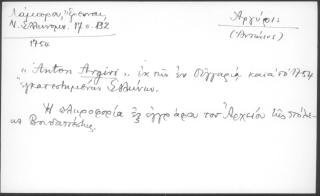 Λάμπρου, Ἔρευναι,
Ν. Ἑλληνομ. 17 σ. 132
1754
Ἀργύρης
(Ἀντώνιος)
"Anton Argiri" ἐκ τῶν ἐν Οὑγγαρίᾳ κατὰ τὸ 1754
ἐγκατεστημένων Ἑλλήνων.
Ἡ πληροφορία ἐξ ἐγγράφου τοῦ Ἀρχείου τῆς πόλε-
ως Βουδαπέστης.